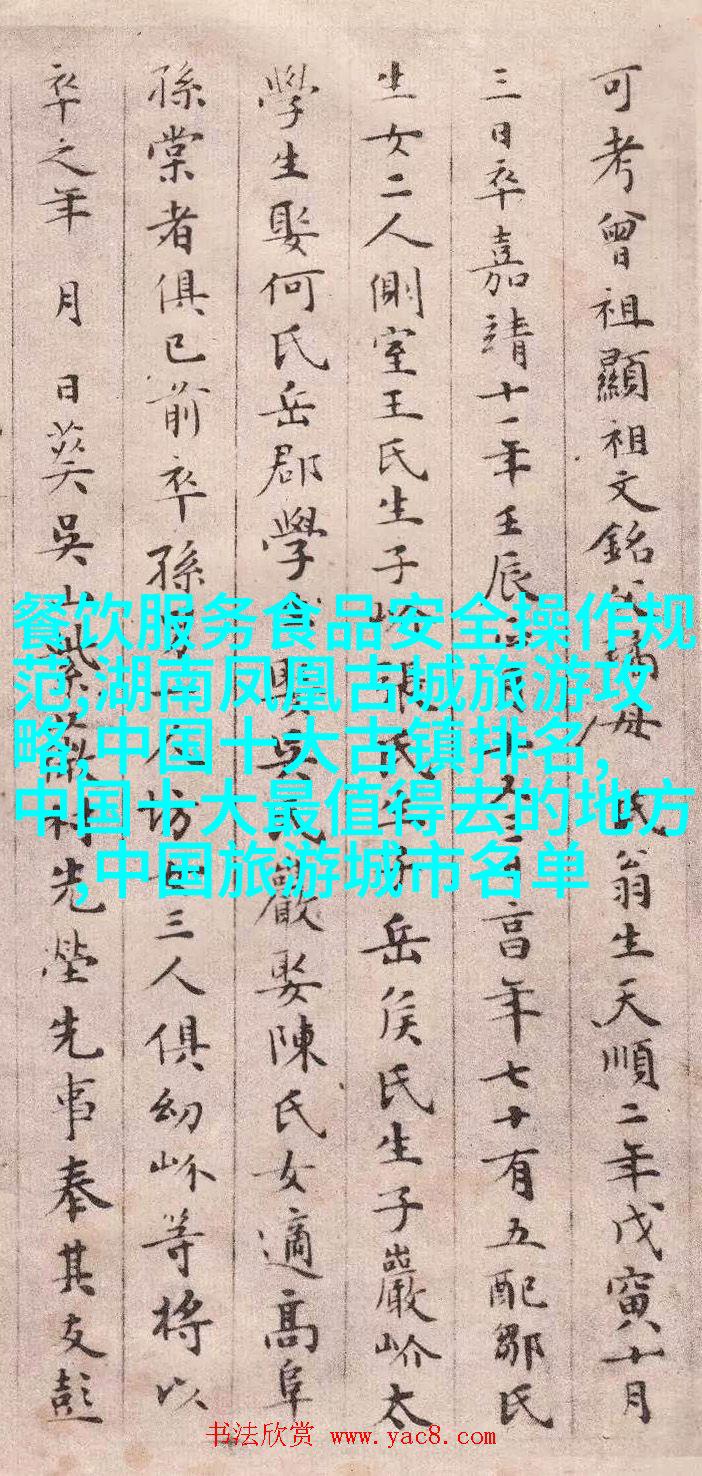 可考曾祖顯祖文銘父母 氏翁生天順二年戊寅十月
三日卒嘉靖十一年壬辰月高年七十有五配鄒氏
生女二人側室王氏生子岕張氏生子岳侯氏生子巖岕太
學生娶何氏岳郡學生娶吳氏巖娶陳氏女適高阜
孫棠者俱已前卒孫男人坊女三人俱幼岕等將以
卒之年 月 日葬吳山紫村先塋先事奉其友彭
餐饮服务食品安全操作规
范,湖南凤凰古城旅游攻
略,中国十大古镇排名,
中国十大最值得去的地方
,中国旅游城市名单
书法欣赏 www.yac8.com